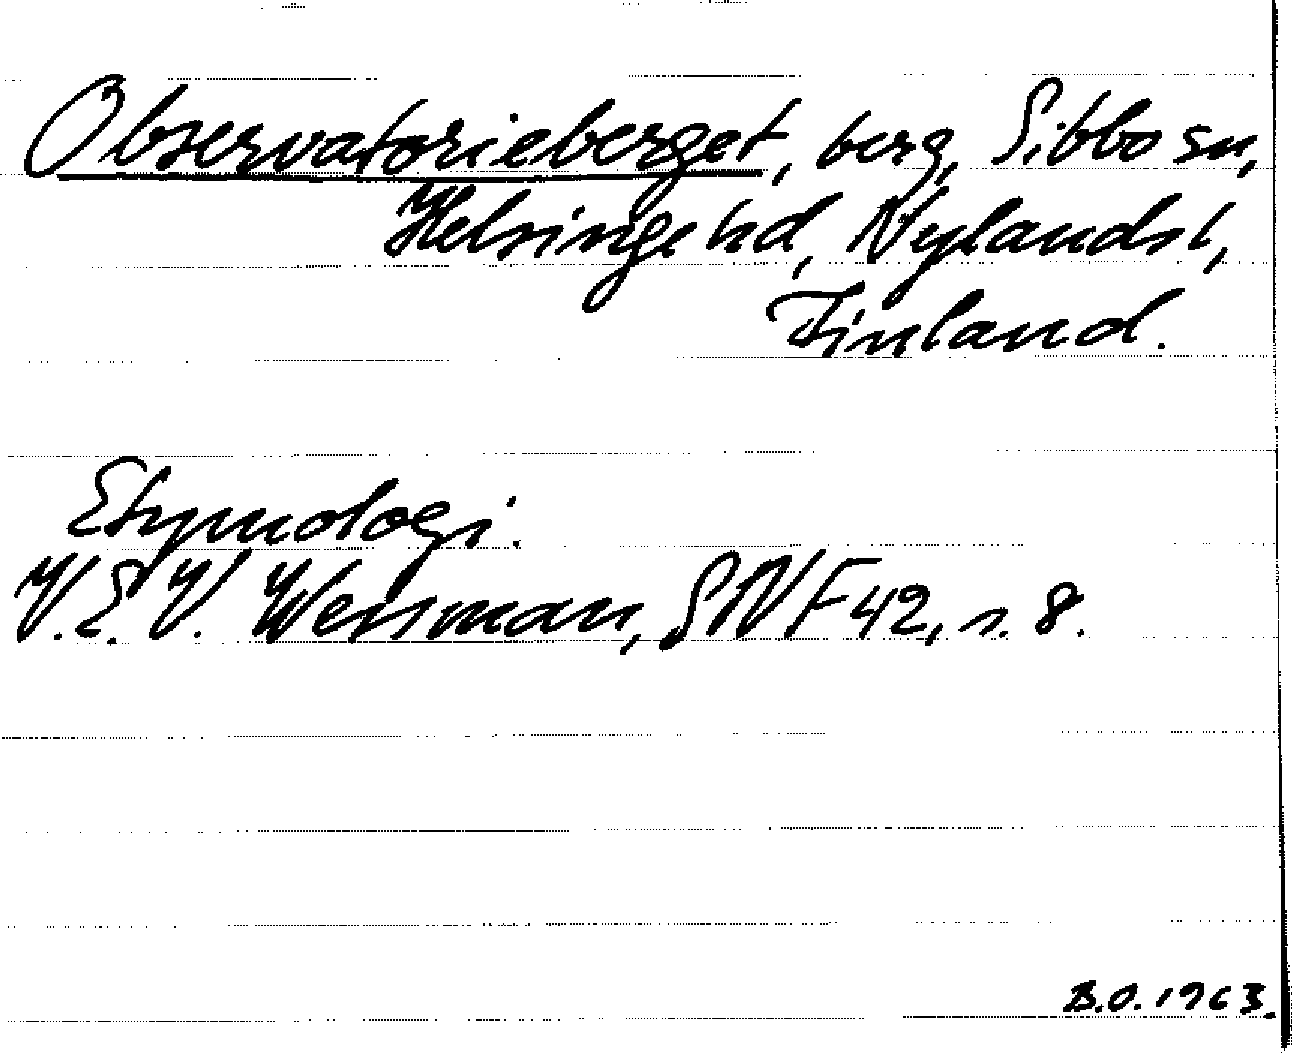 Observatorieberget, berg, Sibbo sn,
Helsinge hd, Nylands l,
Finland.
Etymologi.
V.E.V. Wessman, SNF 42, s. 8.
B.O. 1963.